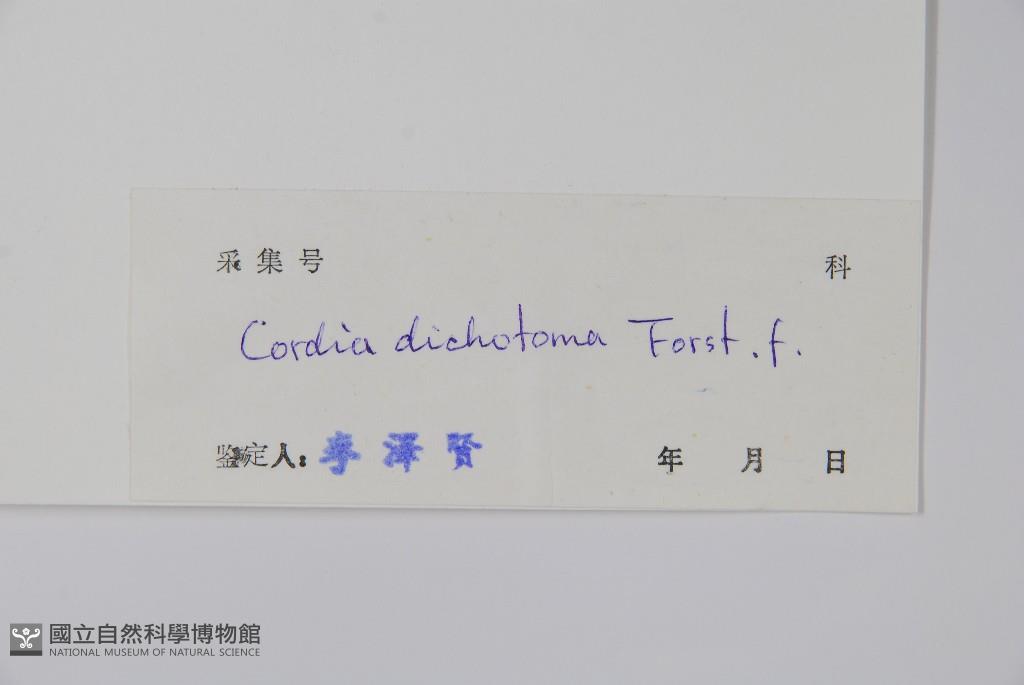 采集号 科
Cordia dichotoma Forst.f.
鉴定人:李泽贤 年 月 日
國立自然科學博物館
NATIONAL MUSEUM OF NATURAL SCIENCE